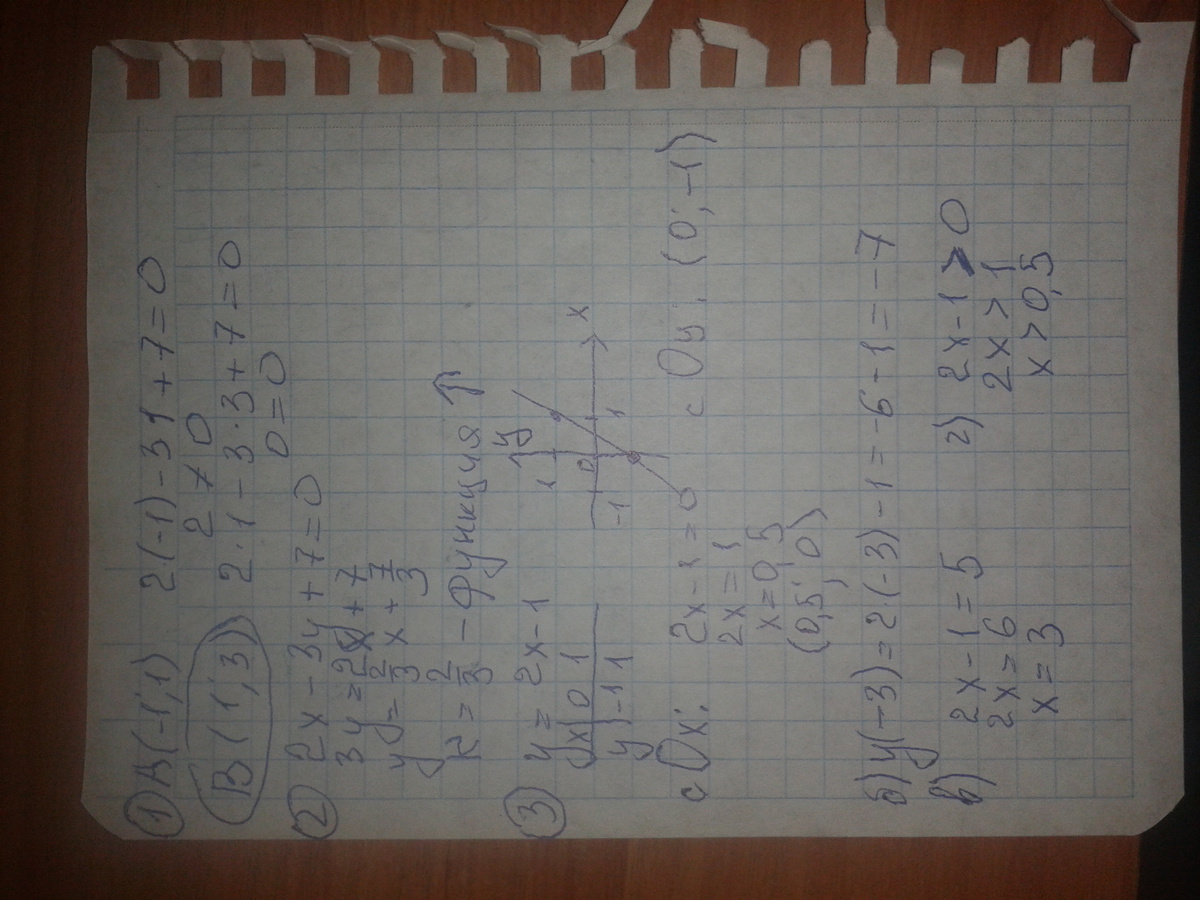 ① A(-1;1) 2(-1)-31+7=0
2≠0
B(1;3) 2·1-3·3+7=0
0=0
② 2x-3y+7=0
3y=2x+7
y=2/3x+7/3
k=2/3 - функция ↑
③ y=2x-1
x 0 1
y -1 1
y
1
0
1
x
-1
с Ox: 2x-1=0 с Oy: (0;-1)
2x=1
x=0,5
(0,5;0)
б) y(-3)=2·(-3)-1=-6-1=-7
в) 2x-1=5 г) 2x-1>0
2x=6 2x>1
x=3 x>0,5